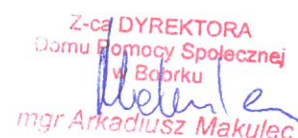 Z-ca DYREKTORA
Domu Pomocy Społecznej
w Bobrku
mgr Arkadiusz Makulec